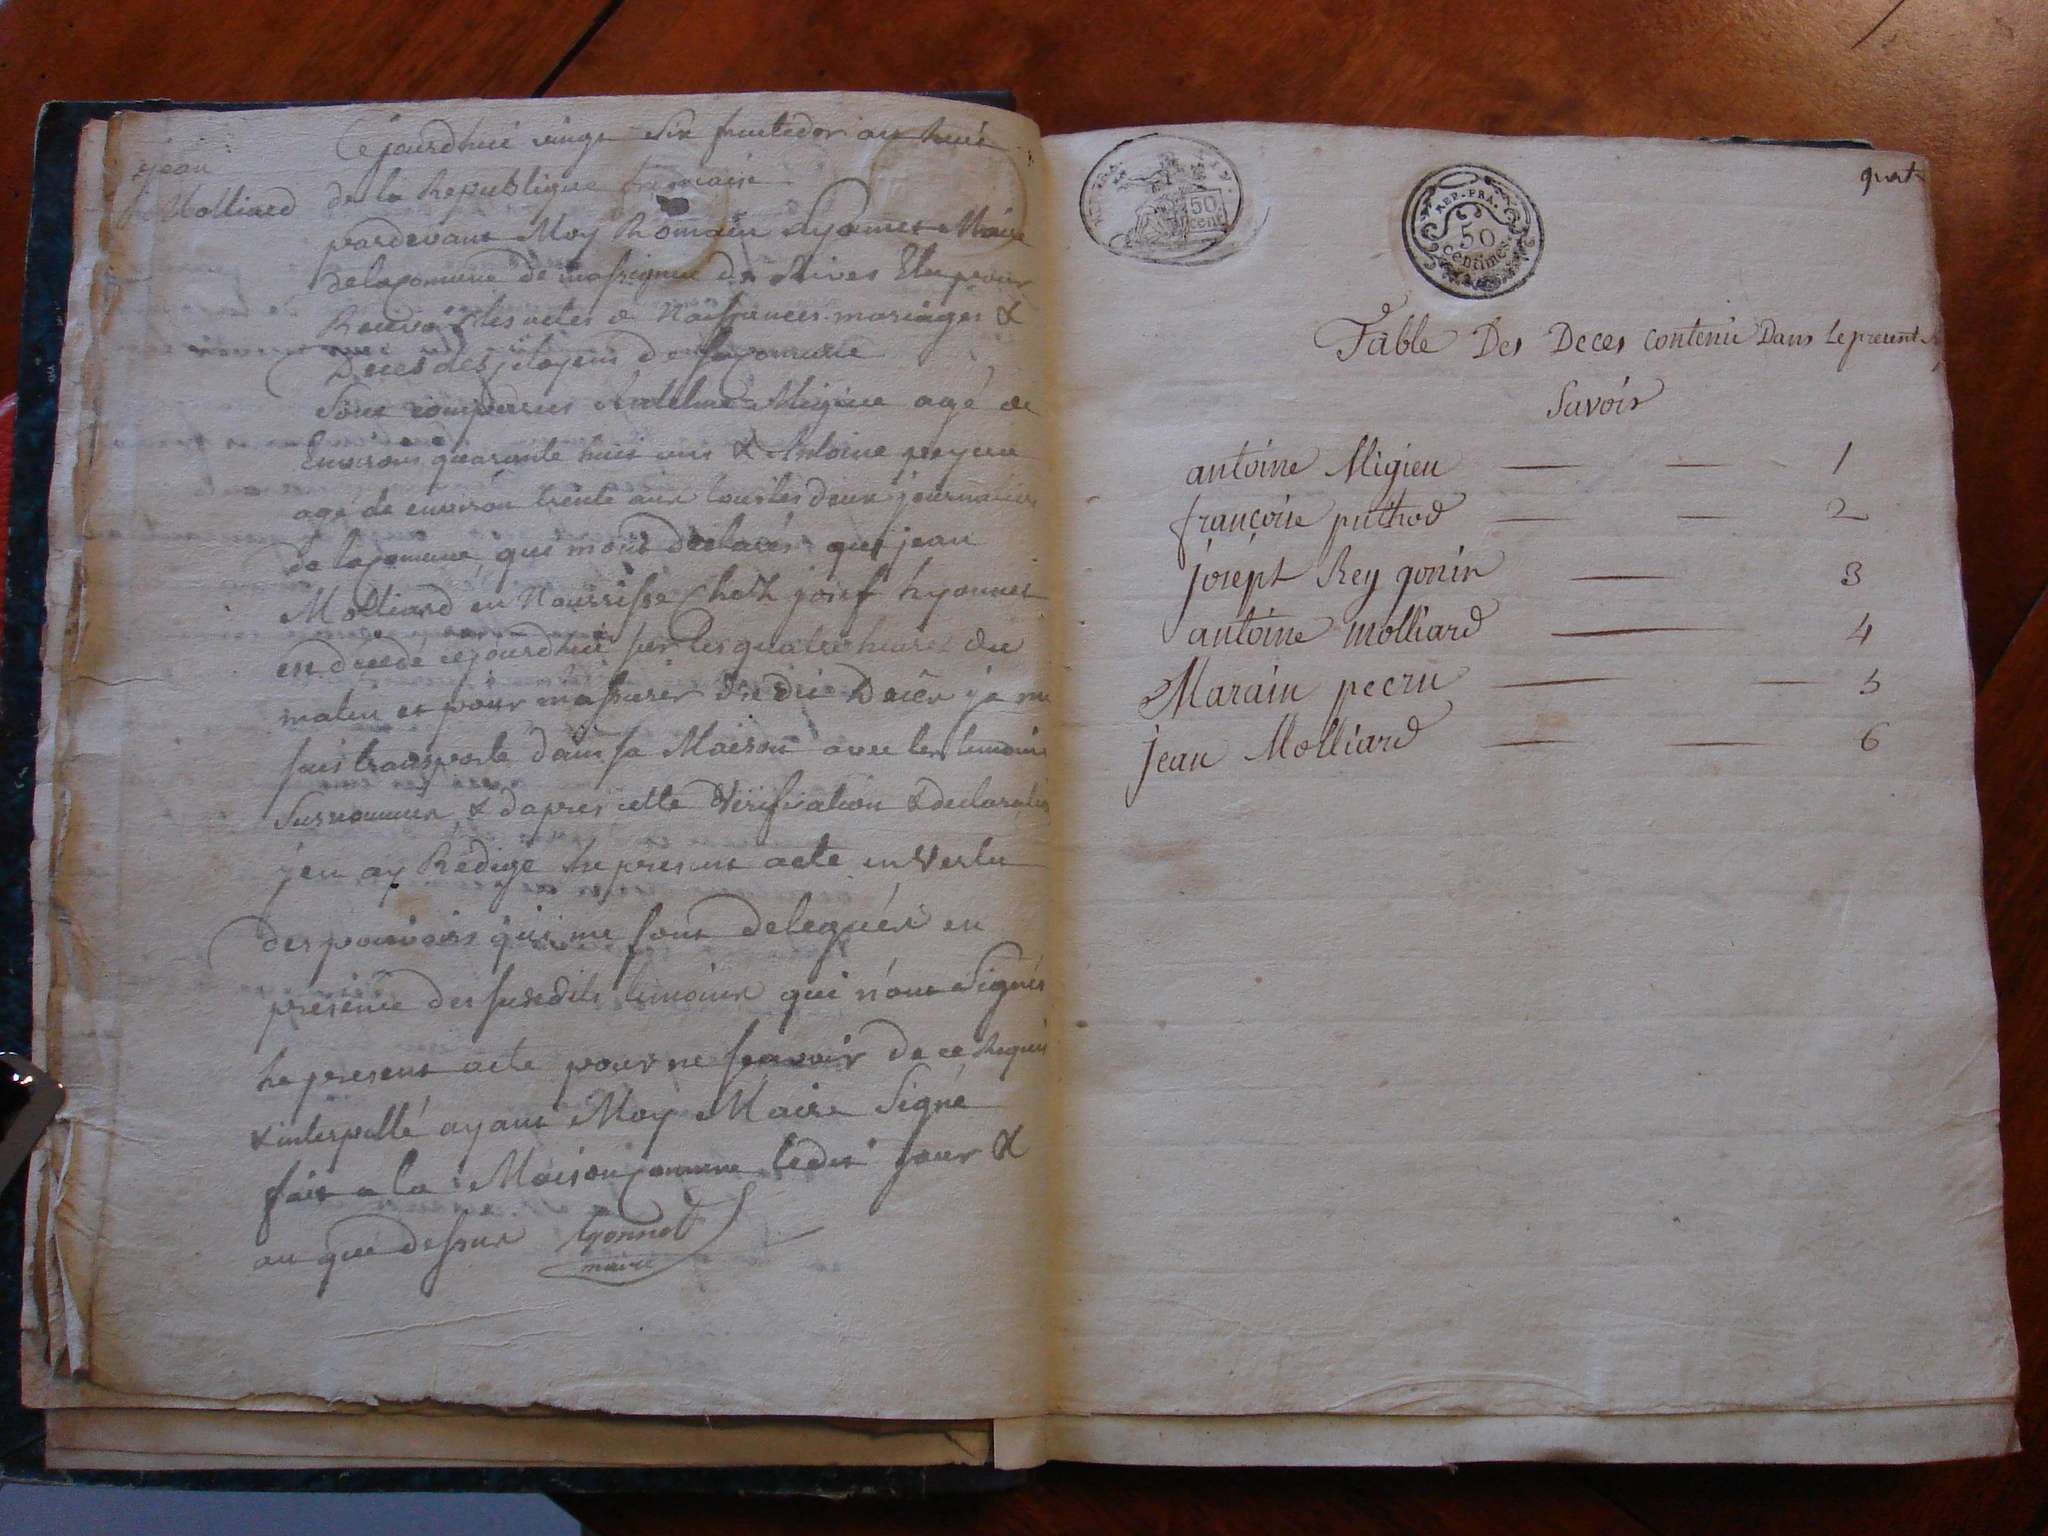 jean
Molliard
Cejourdhui vingt six fructidor an huit
de la Republique francaise
pardevant Moy Romain Lyonnet Maire
de la comune de massignieu de Rives Elu pour
Recevoir les actes de Naissances mariages &
Deces des citoyens de sa comune
Sont comparus Antelme Migieu agé de
Environ quarante huit ans & Antoine peyeru
agé de environ trente ans tous les deux journaliers
de la comune, qui mont déclarés que jean
Molliard en Nourrisse Chez josef Lyonnet
est decedé cejourdhui sur les quatre heures du
matin et pour m'assurer du dit Décés je me
suis transporté dans sa Maison avec les temoins
Susnommés & dapres cette Verification & declaration
jen ay Rédigé le present acte en Vertu
des pouvoirs qui me sont delegués en
présence des susdits temoins qui n'ont Signés
le present acte pour ne scavoir de ce Requis
& interpellé ayant Moy Maire Signé
fait a la Maison Commune ledit jour &
an que dessus Lyonnet
maire
REP. FRA.
50
cent
REP. FRA.
50
Centimes.
Table Des Deces contenu Dans Le present
Savoir
antoine Migieu 1
françoise puthod 2
josépt Rey gonin 3
antoine molliard 4
Marain pecru 5
jean Molliard 6